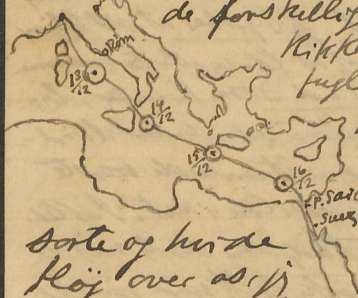 de forskellig
Kikke
fugl
Rom
13/12
14/12
15/12
16/12
P. Said
Suez
sorte og hvide
fløj over os, js